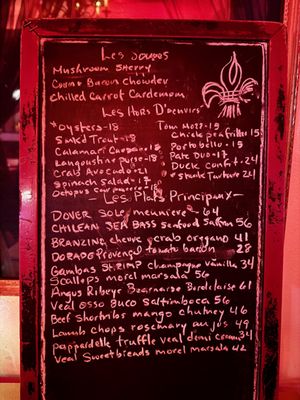 Les Soupes
Mushroom Sherry
Corn & Bacon Chowder
Chilled Carrot Cardemom
Les Hors D'oeuvres
*oysters-18
Smked Trout-18
Calamari
Langoustine purse-18
Crab Avocado-21
Spinach Salad-17
Octopus
Tom Mozz-15
Chick pea fritter 15
Portobello-15
Pate Duo-17
Duck Conf. 24
Turture 24
-Les Plats Principaux-
DOVER SOLE meunniere 64
CHILEAN SEA BASS Seafood Saffron 56
BRANZINO chevre crab oregano 41
DORADE Provençal tomato bacon 28
Gambas SHRIMP champagne Vanilla 34
Scallops morel marsala 56
Angus Ribeye Bearnaise Bordelaise 61
Veal osso Buco Saltimboca 56
Beef Shortribs mango chutney 46
Lamb chops rosemary aujos 49
pappardelle truffle veal demi cream 34
Veal Sweetbreads morel marsala 42